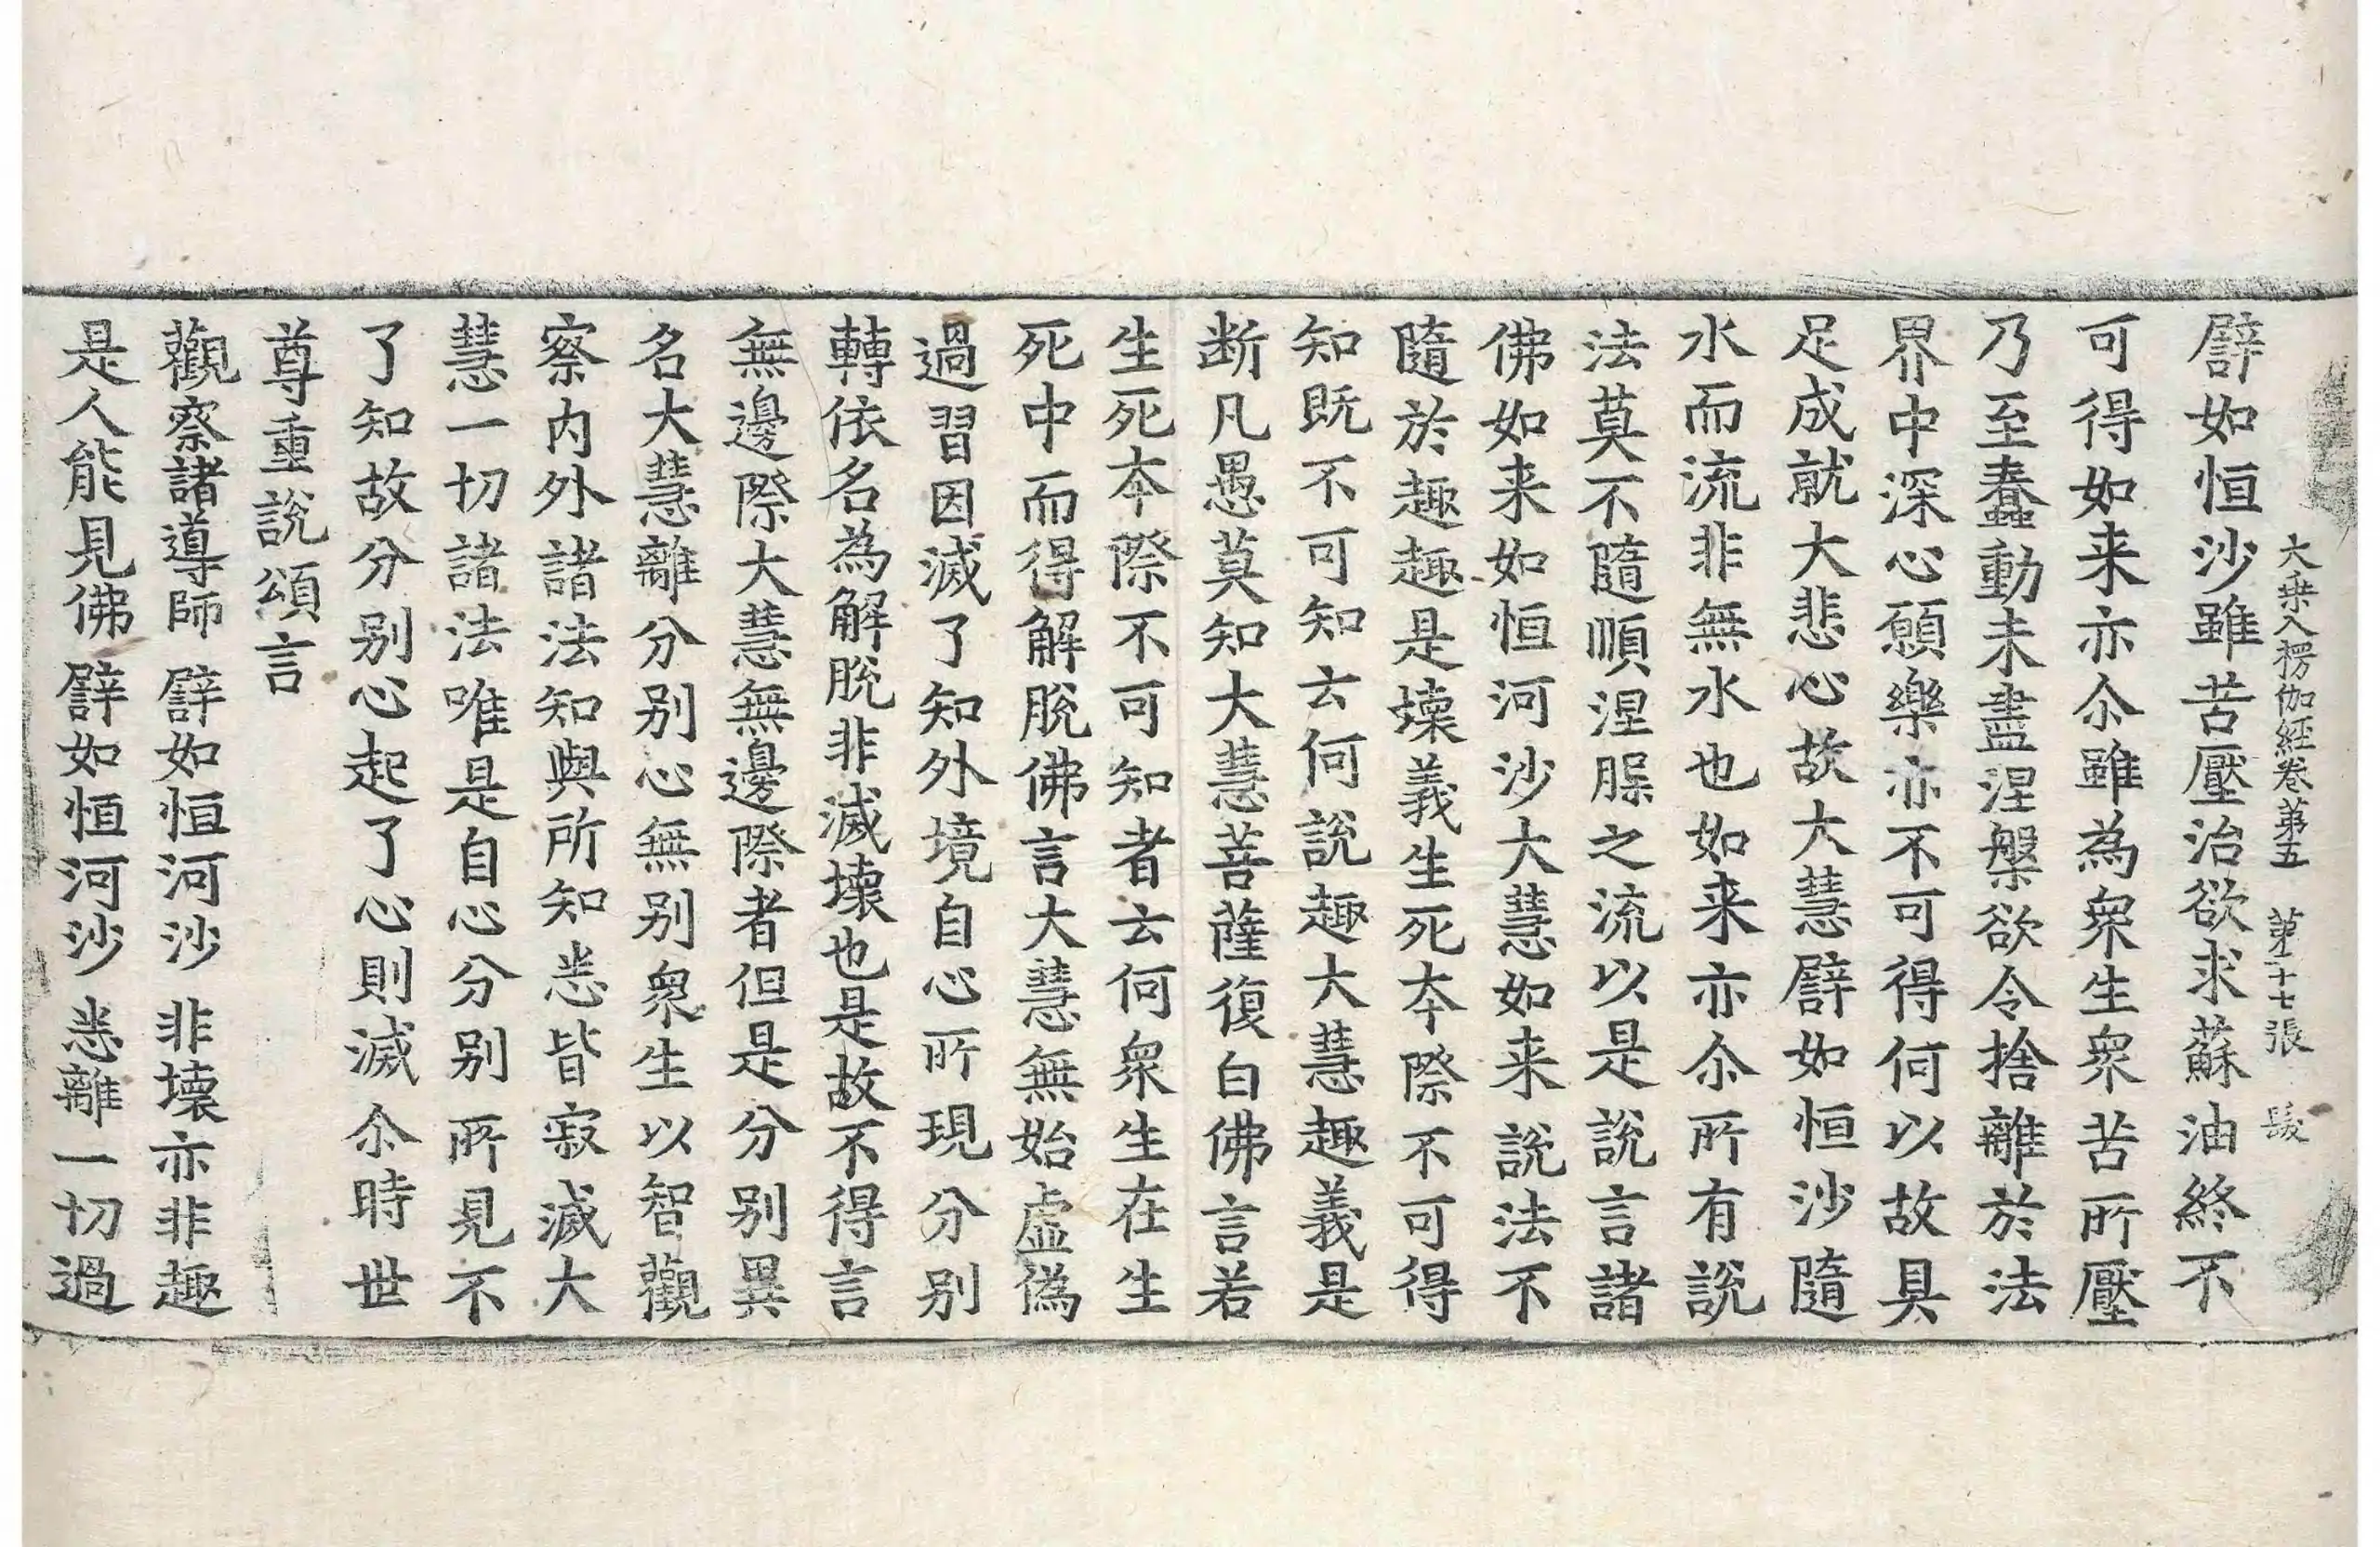 大乗入楞伽經卷第五　第二十七張　髮
譬如恒沙雖苦壓治欲求蘇油終不
可得如来亦尒雖為衆生衆苦所壓
乃至蠢動未盡涅槃欲令捨離於法
界中深心願樂亦不可得何以故具
足成就大悲心故大慧譬如恒沙隨
水而流非無水也如来亦尒所有說
法莫不隨順涅槃之流以是說言諸
佛如来如恒河沙大慧如来說法不
隨於趣趣是壞義生死夲際不可得
知既不可知云何說趣大慧趣義是
断凡愚莫知大慧菩薩復白佛言若
生死夲際不可知者云何衆生在生
死中而得解脫佛言大慧無始虛偽
過習因滅了知外境自心所現分别
轉依名為解脫非滅壞也是故不得言
無邊際大慧無邊際者但是分别異
名大慧離分别心無别衆生以智觀
察内外諸法知與所知悉皆寂滅大
慧一切諸法唯是自心分别所見不
了知故分别心起了心則滅尒時世
尊重說頌言
觀察諸導師　譬如恒河沙　非壞亦非趣
是人能見佛　譬如恒河沙　悉離一切過